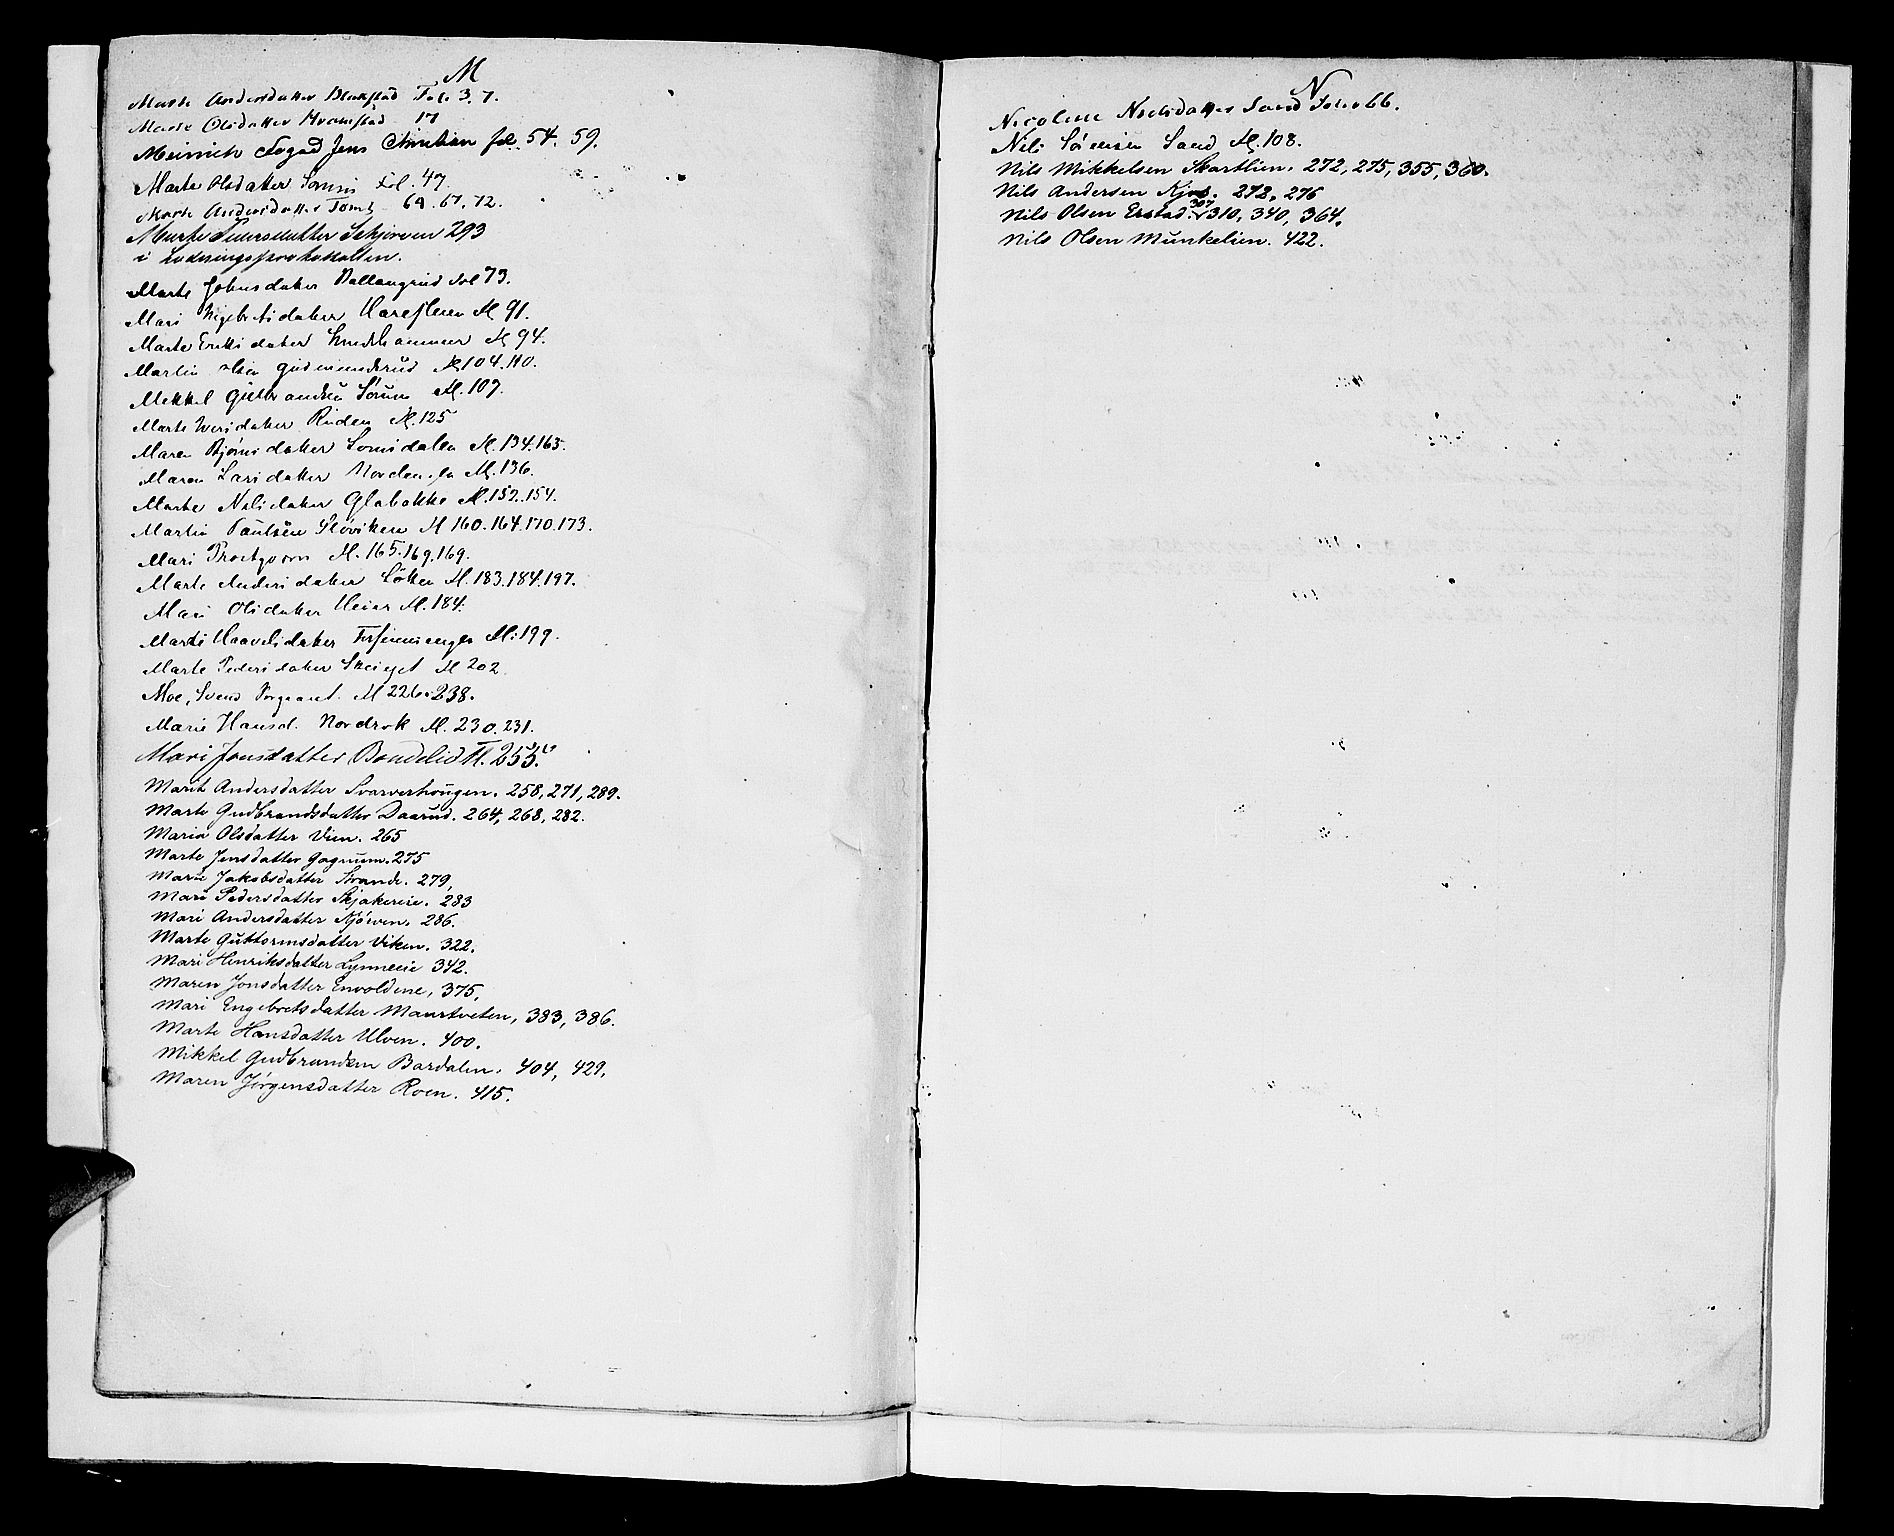 M
Marte Andersdatter Blakstad Fol. 3. 7.
Marte Olsdatter Hvamstad 17
Meinich Fogad Jens Christian fol. 54. 59.
Marte Olsdatter Fol. 47.
Marte Andersdatter Tomt 64. 67. 72.
Marte Iversdatter Schjerven 293
i
Marte Johnsdatter Fol 73.
Mari fl 91.
Marte Eriksdatter fl 94.
Martin Olsen Gudmundsrud fl. 104. 110.
Mekkel Gulbrandsen Sørum fl. 107.
Marte Iversdatter Ruden fl. 125
Maren Bjørnsdatter fl. 134. 163.
Maren Larsdatter fl. 136.
Marte Nilsdatter Glabakke fl. 152. 154.
Martin Paulsen Sløviken fl 160. 164. 170. 173.
Mari fl. 165. 169. 169.
Marte Andersdatter Løken fl. 183. 184. 197.
Mari Olsdatter Heier fl. 184.
Marte fl. 199.
Marte Pedersdatter fl 202
Moe, Svend Sergeant. fl 226. 238.
Marie Hansd. Nordrok fl. 230. 231.
Mari Jonsdatter Bondelid fl. 255.
Marit Andersdatter Svarverhougen. 258, 271, 289.
Marte Gudbrandsdatter Daarud. 264, 268, 282.
Maria Olsdatter Vien. 265
Marte Jensdatter Gagnum. 275
Marie Jakobsdatter Strande. 279,
Mari Pedersdatter Skjakereie. 283
Mari Andersdatter Kjørven. 286.
Marte Guttormsdatter Viken. 322.
Mari Henriksdatter Lynneeie 342.
Maren Jonsdatter Envoldene, 375.
Mari Engebretsdatter Maurtveten, 383, 386.
Marte Hansdatter Ulven. 400.
Mikkel Gudbrandsen Bardalen. 404, 429.
Maren Jørgensdatter Roen. 415.
N
Nicoline Nielsdatter Sand Folio 66.
Nils Sørensen Sand fl. 108.
Nils Mikkelsen Skartlien. 272, 275, 355, 360.
Nils Andersen Kjos. 272, 276
Nils Olsen Erstad. 307 310, 340, 364.
Nils Olsen Munkelien. 422.